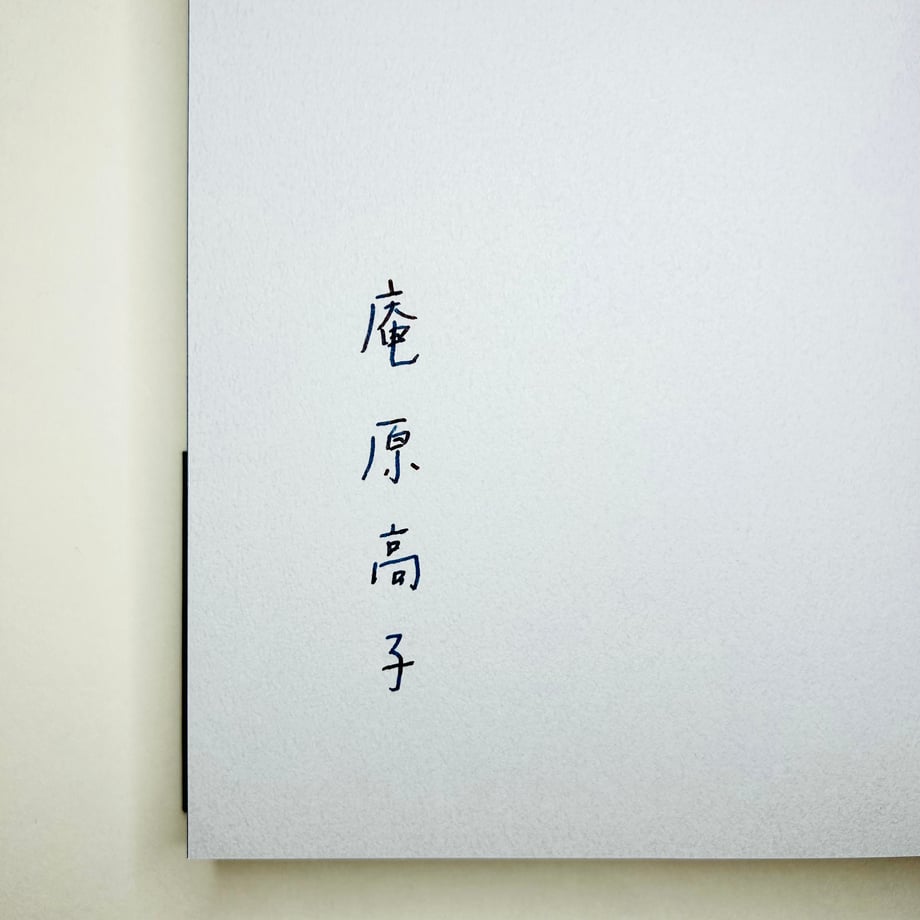 庵原高子